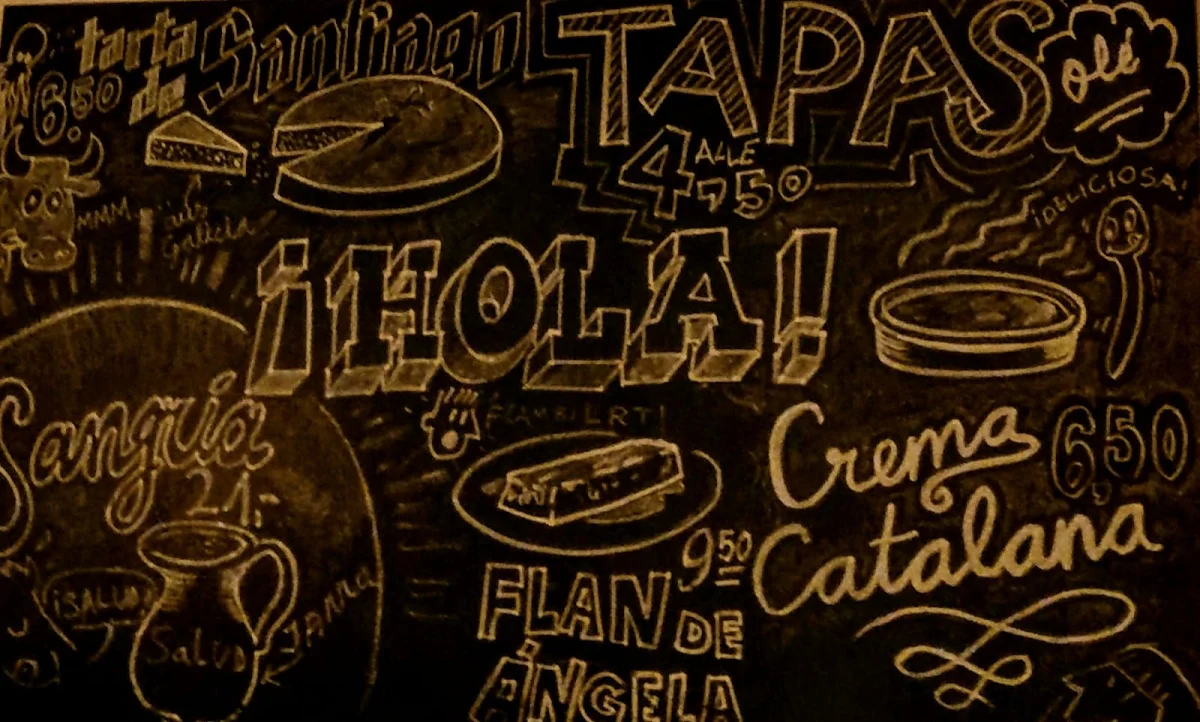 tarta
de
Santiago
6.50
TAPAS
ALLE
4,50
olé
MMM
aus
Galicia
¡DELICIOSA!
¡HOLA!
Sangria
21,-
¡SALUD!
Salud
JARRA
FLAMBIERT!
9.50
FLAN DE
ÁNGELA
Crema
Catalana
6,50